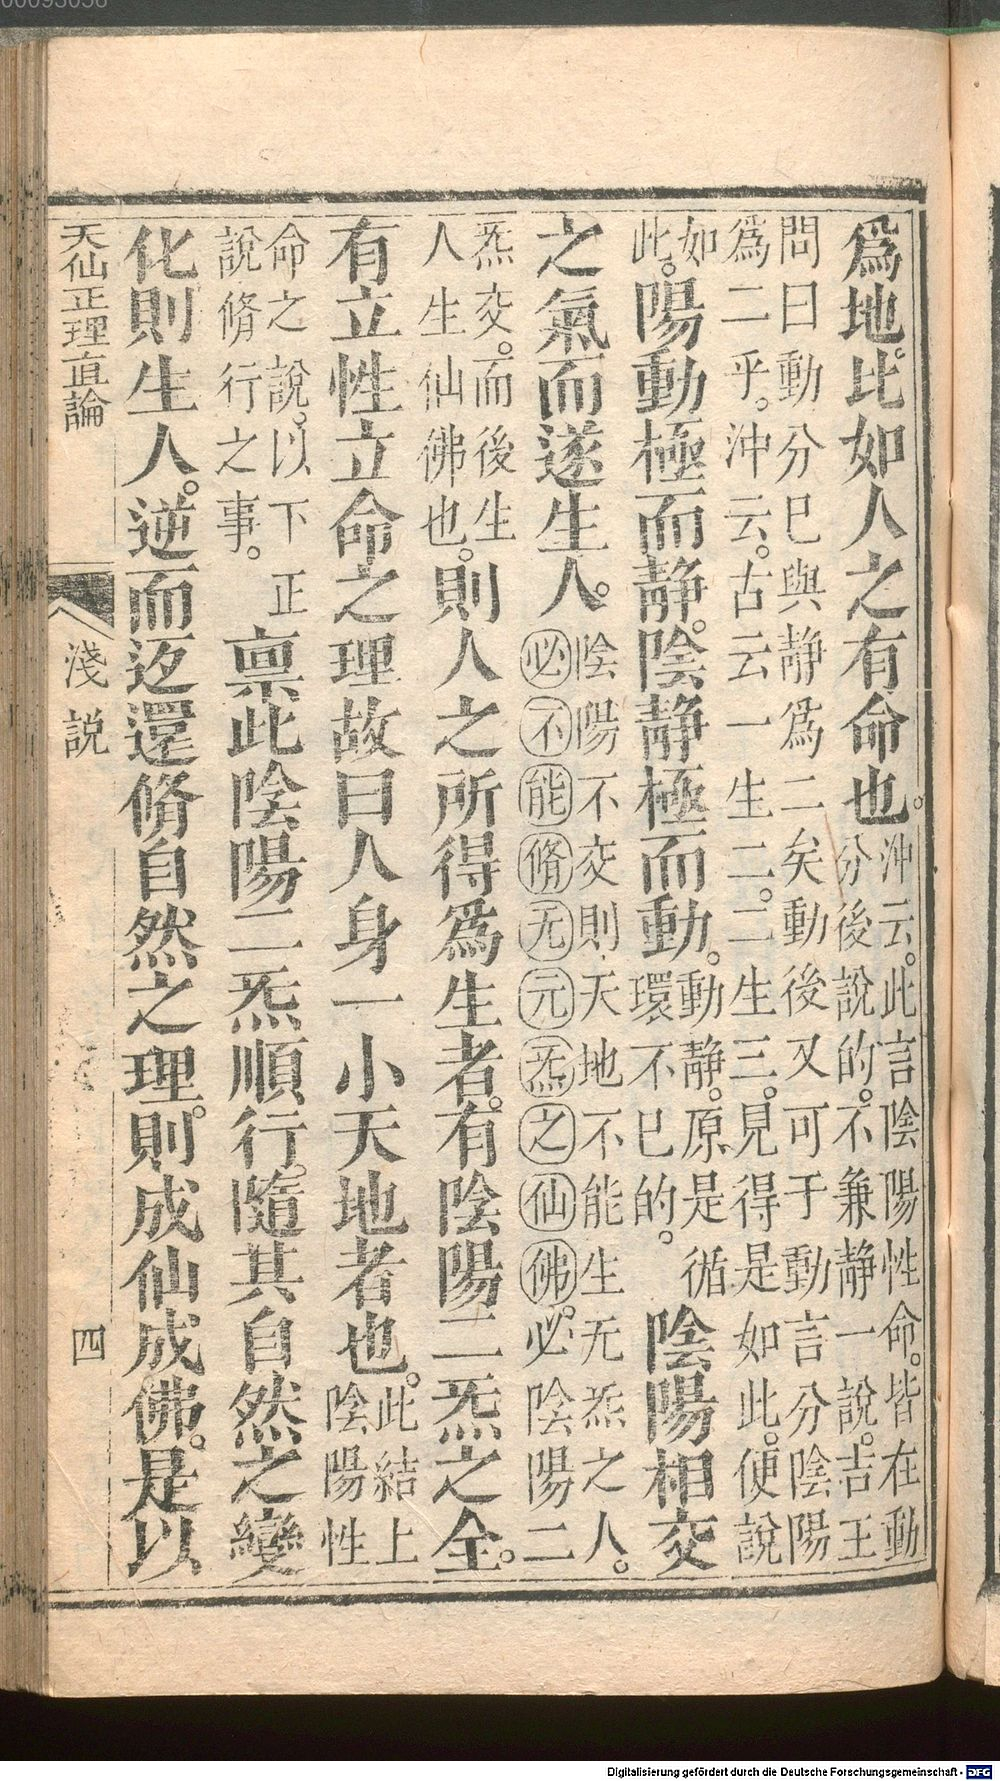 爲地。比如人之有命也。
沖云。此言陰陽性命。皆在動
分後說的。不兼靜一說。吉王
問曰動分巳與靜爲二矣動後又可于動言分陰陽
爲二乎。沖云。古云一生二。二生三。見得是如此。便說
如
此。
陽動極而靜。陰靜極而動。
動靜。原是循
環不巳的。
陰陽相交
之氣而遂生人。
陰陽不交則天地不能生无炁之人。
必不能脩无元炁之仙佛。必陰陽二
炁交。而後生
人生仙佛也。
則人之所得爲生者。有陰陽二炁之全。
有立性立命之理故曰人身一小天地者也。
此結上
陰陽性
命之說。以下正
說脩行之事。
稟此陰陽二炁順行。隨其自然之變
化則生人。逆而返還脩自然之理。則成仙成佛。是以
天仙正理直論
淺說
四
Digitalisierung gefördert durch die Deutsche Forschungsgemeinschaft - DFG